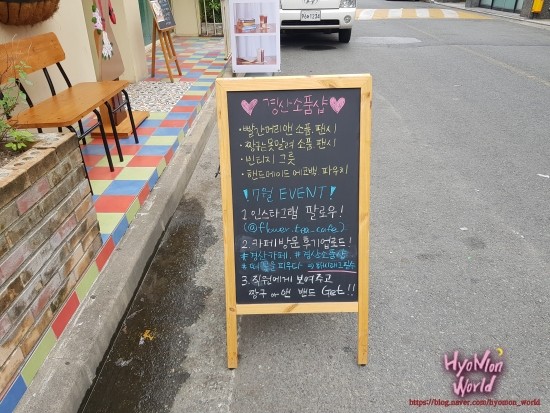 경산소품샵
·빨간머리앤 소품,팬시
·짱구는못말려 소품,팬시
·빈티지 그릇
·핸드메이드 에코백 파우치
!7월 EVENT!
1. 인스타그램 팔로우!
(@flower.tea_cafe)
2. 카페방문 후기업로드!
#경산카페, #경산소품샵
3. 직원에게 보여주고
짱구 or 앤 밴드 Get!!
HyoMon'
World
https://blog.naver.com/hyomon_world